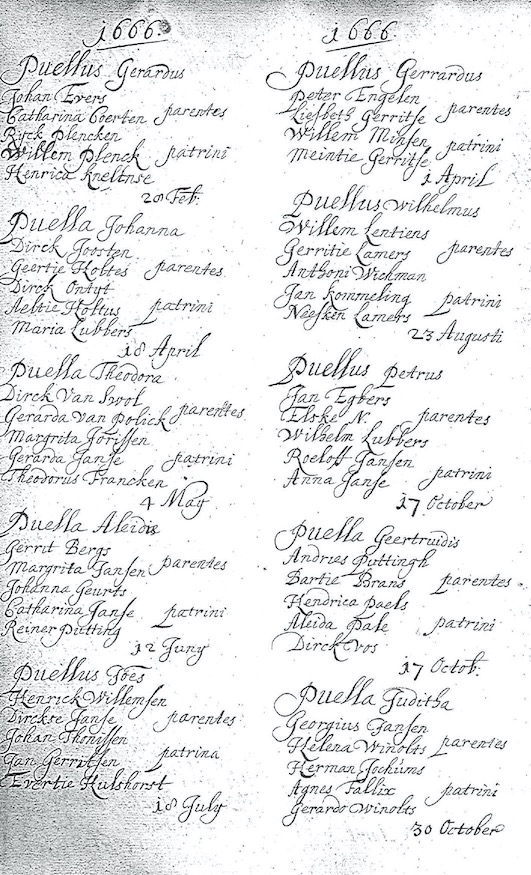 1666.
Puellus Gerardus
Johan Evers
Catharina Coerten parentes
Ryck Plencken
Willem Plenck patrini
Henrica Kneltnse
20 Feb:
Puella Johanna
Dirck Joosten
Geertie Holtes parentes
Dirck Ontyt
Aeltie Holtus patrini
Maria Lubbers
18 April
Puella Theodora
Dirck Van Swol
Gerarda Van Polick parentes
Margrita Jorissen
Gerarda Janse patrini
Theodorus Francken
4 May
Puella Aleidis
Gerrit Bergs
Margrita Jansen parentes
Johanna Geurts
Catharina Janse patrini
Reiner Putting
12 Juny
Puellus Joes
Henrick Willemsen
Dirckse Janse parentes
Johan Thonissen
Jan Gerritsen patrina
Evertie Hulshorst
18 July
1666
Puellus Gerrardus
Peter Engelen
Liesbeth Gerritse parentes
Willem Minsen
Meintie Gerritse patrini
1 April
Puellus Wilhelmus
Willem Lentiens
Gerritie Lamers parentes
Anthoni Wichman
Jan Kommeling patrini
Neesken Lamers
23 Augusti
Puellus Petrus
Jan Egbers
Elske N. parentes
Wilhelm Lubbers
Roeloff Jansen
Anna Janse patrini
17 October
Puella Geertruidis
Andries Puttingh
Bartie Brans parentes
Hendrica Paels
Aleida Pale patrini
Dirck Vos
17 Octob:
Puella Juditha
Georgius Jansen
Helena Winolts parentes
Herman Jochums
Agnes Fallix patrini
Gerardo Winolts
30 October